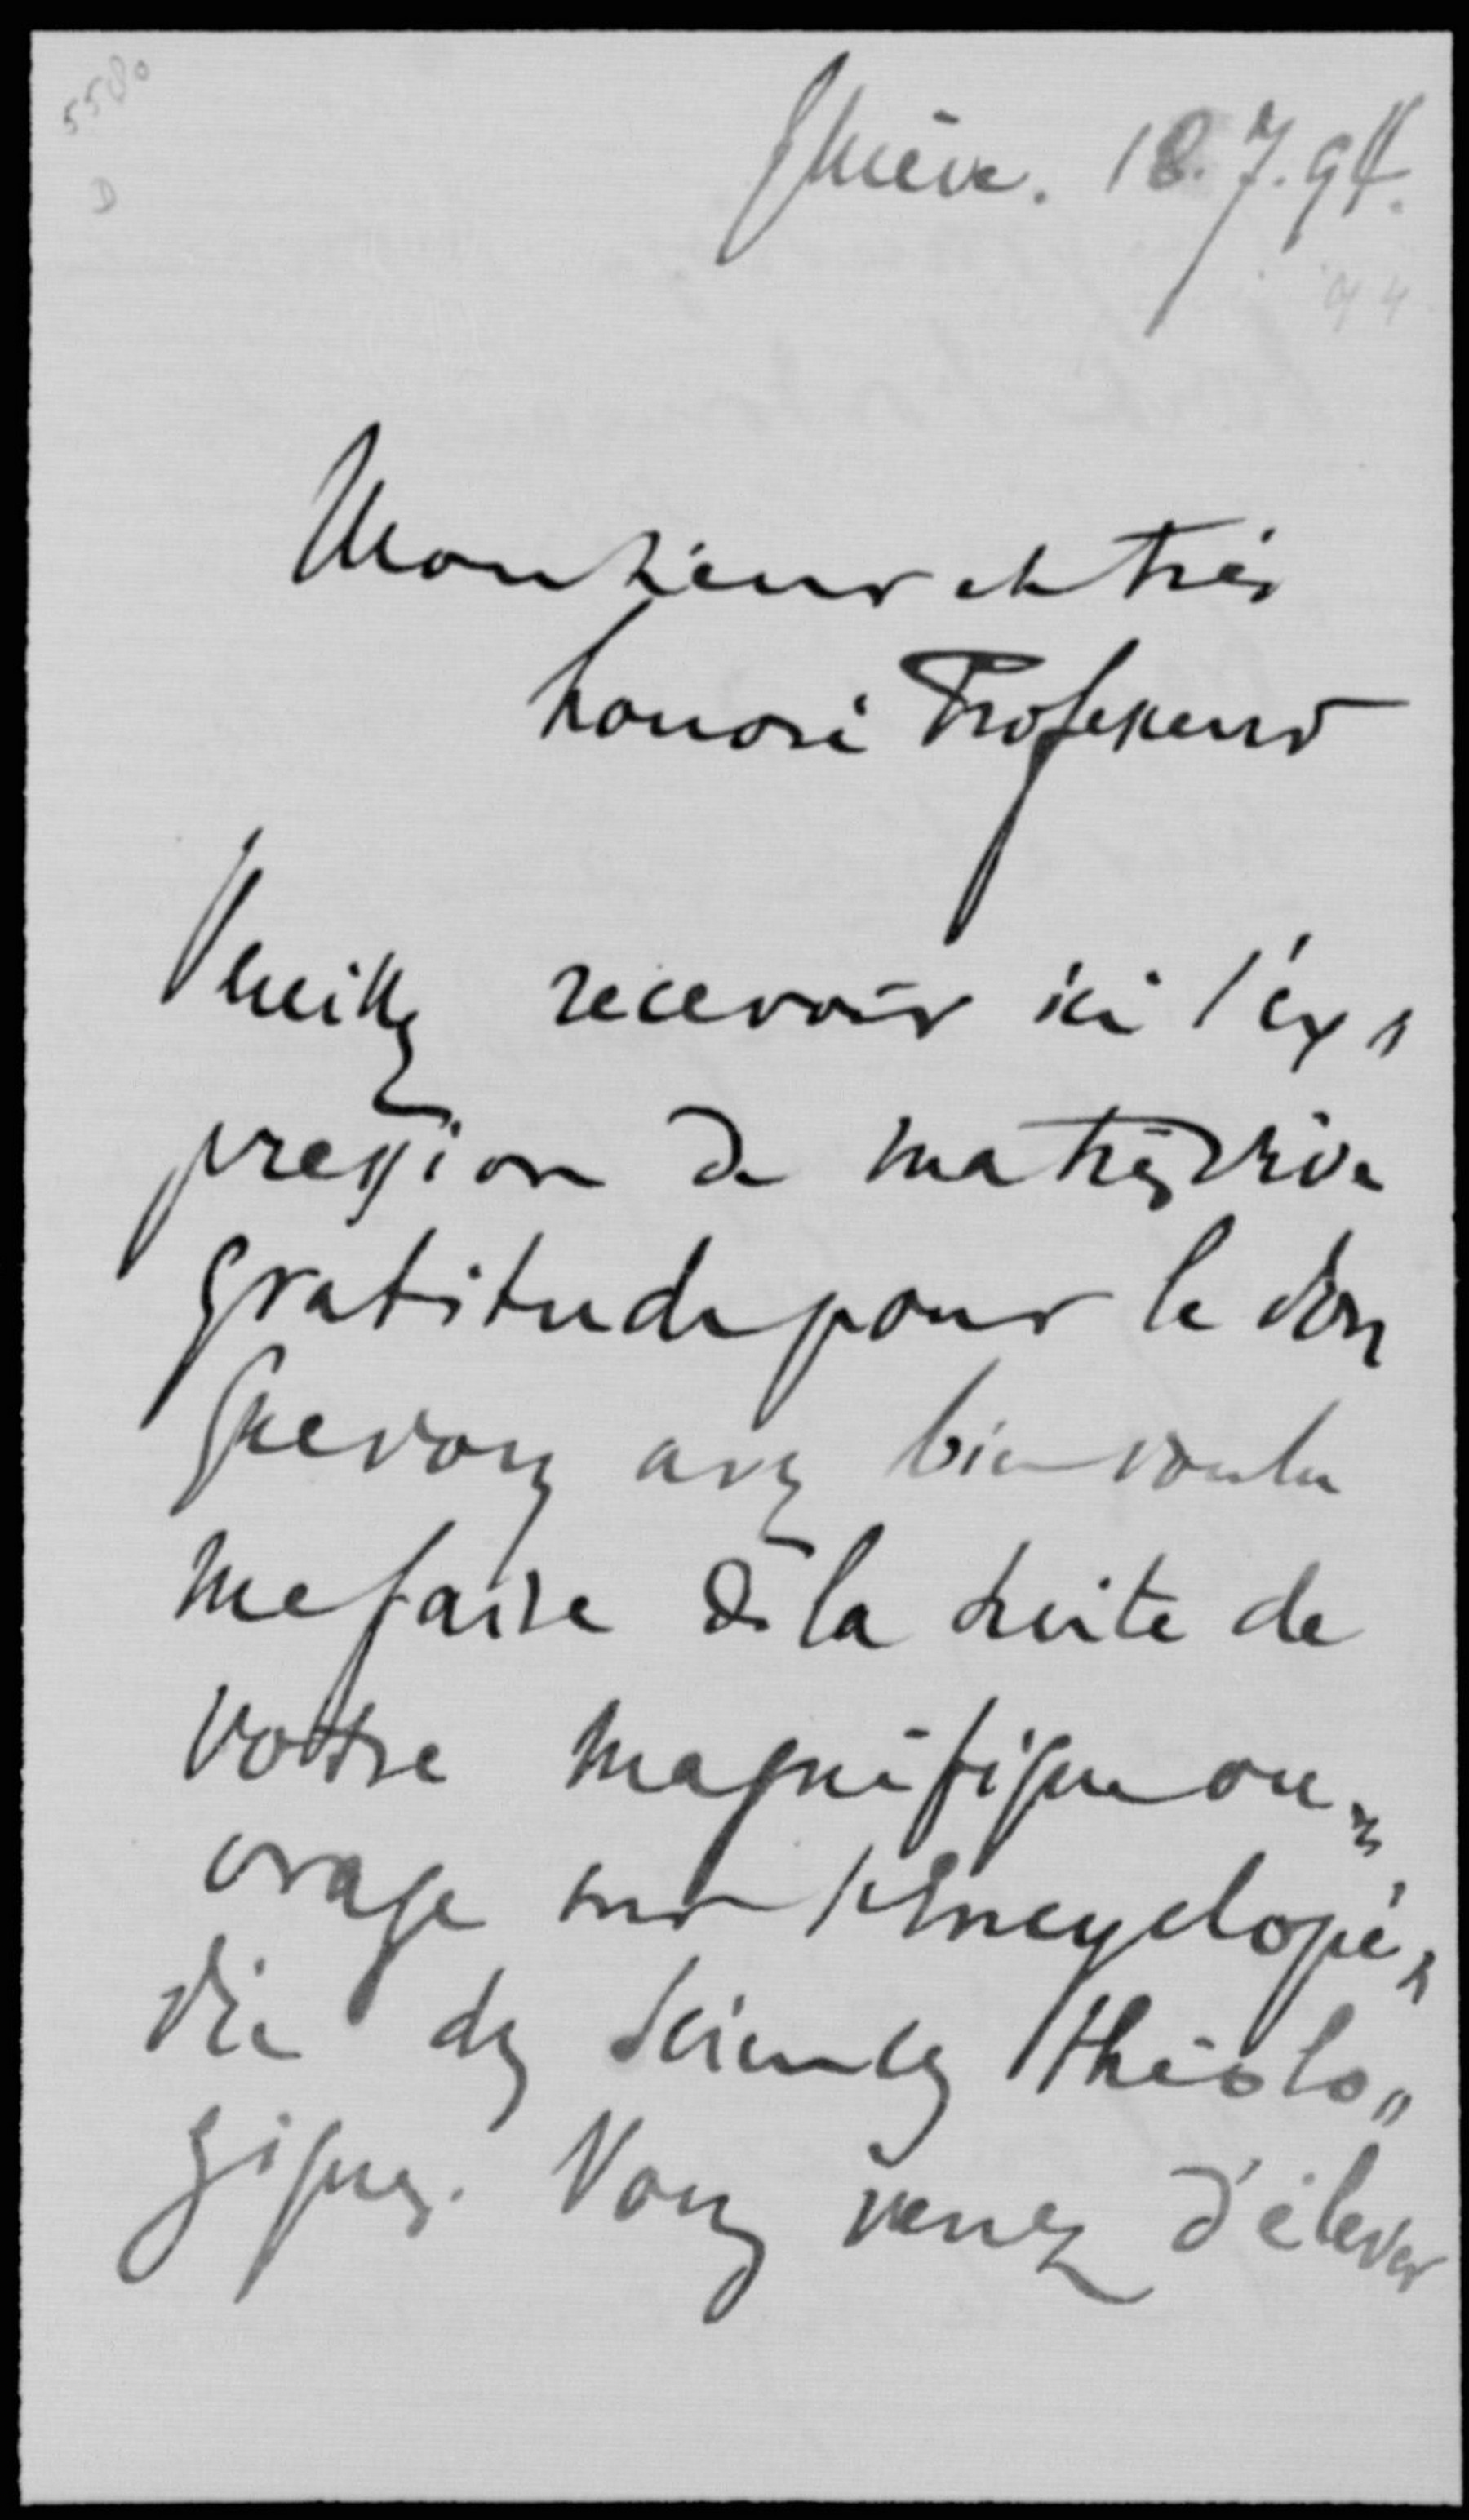 5580
D
Genève. 18.7.94.
94
Monsieur et très
honoré Professeur
Veuillez recevoir ici l'ex„
pression de ma très vive
gratitude pour le don
que vous avez bien voulu
me faire de la suite de
votre magnifique ou„
vrage sur l'Encyclopé„
die des Sciences Théolo„
giques. Vous venez d'élever